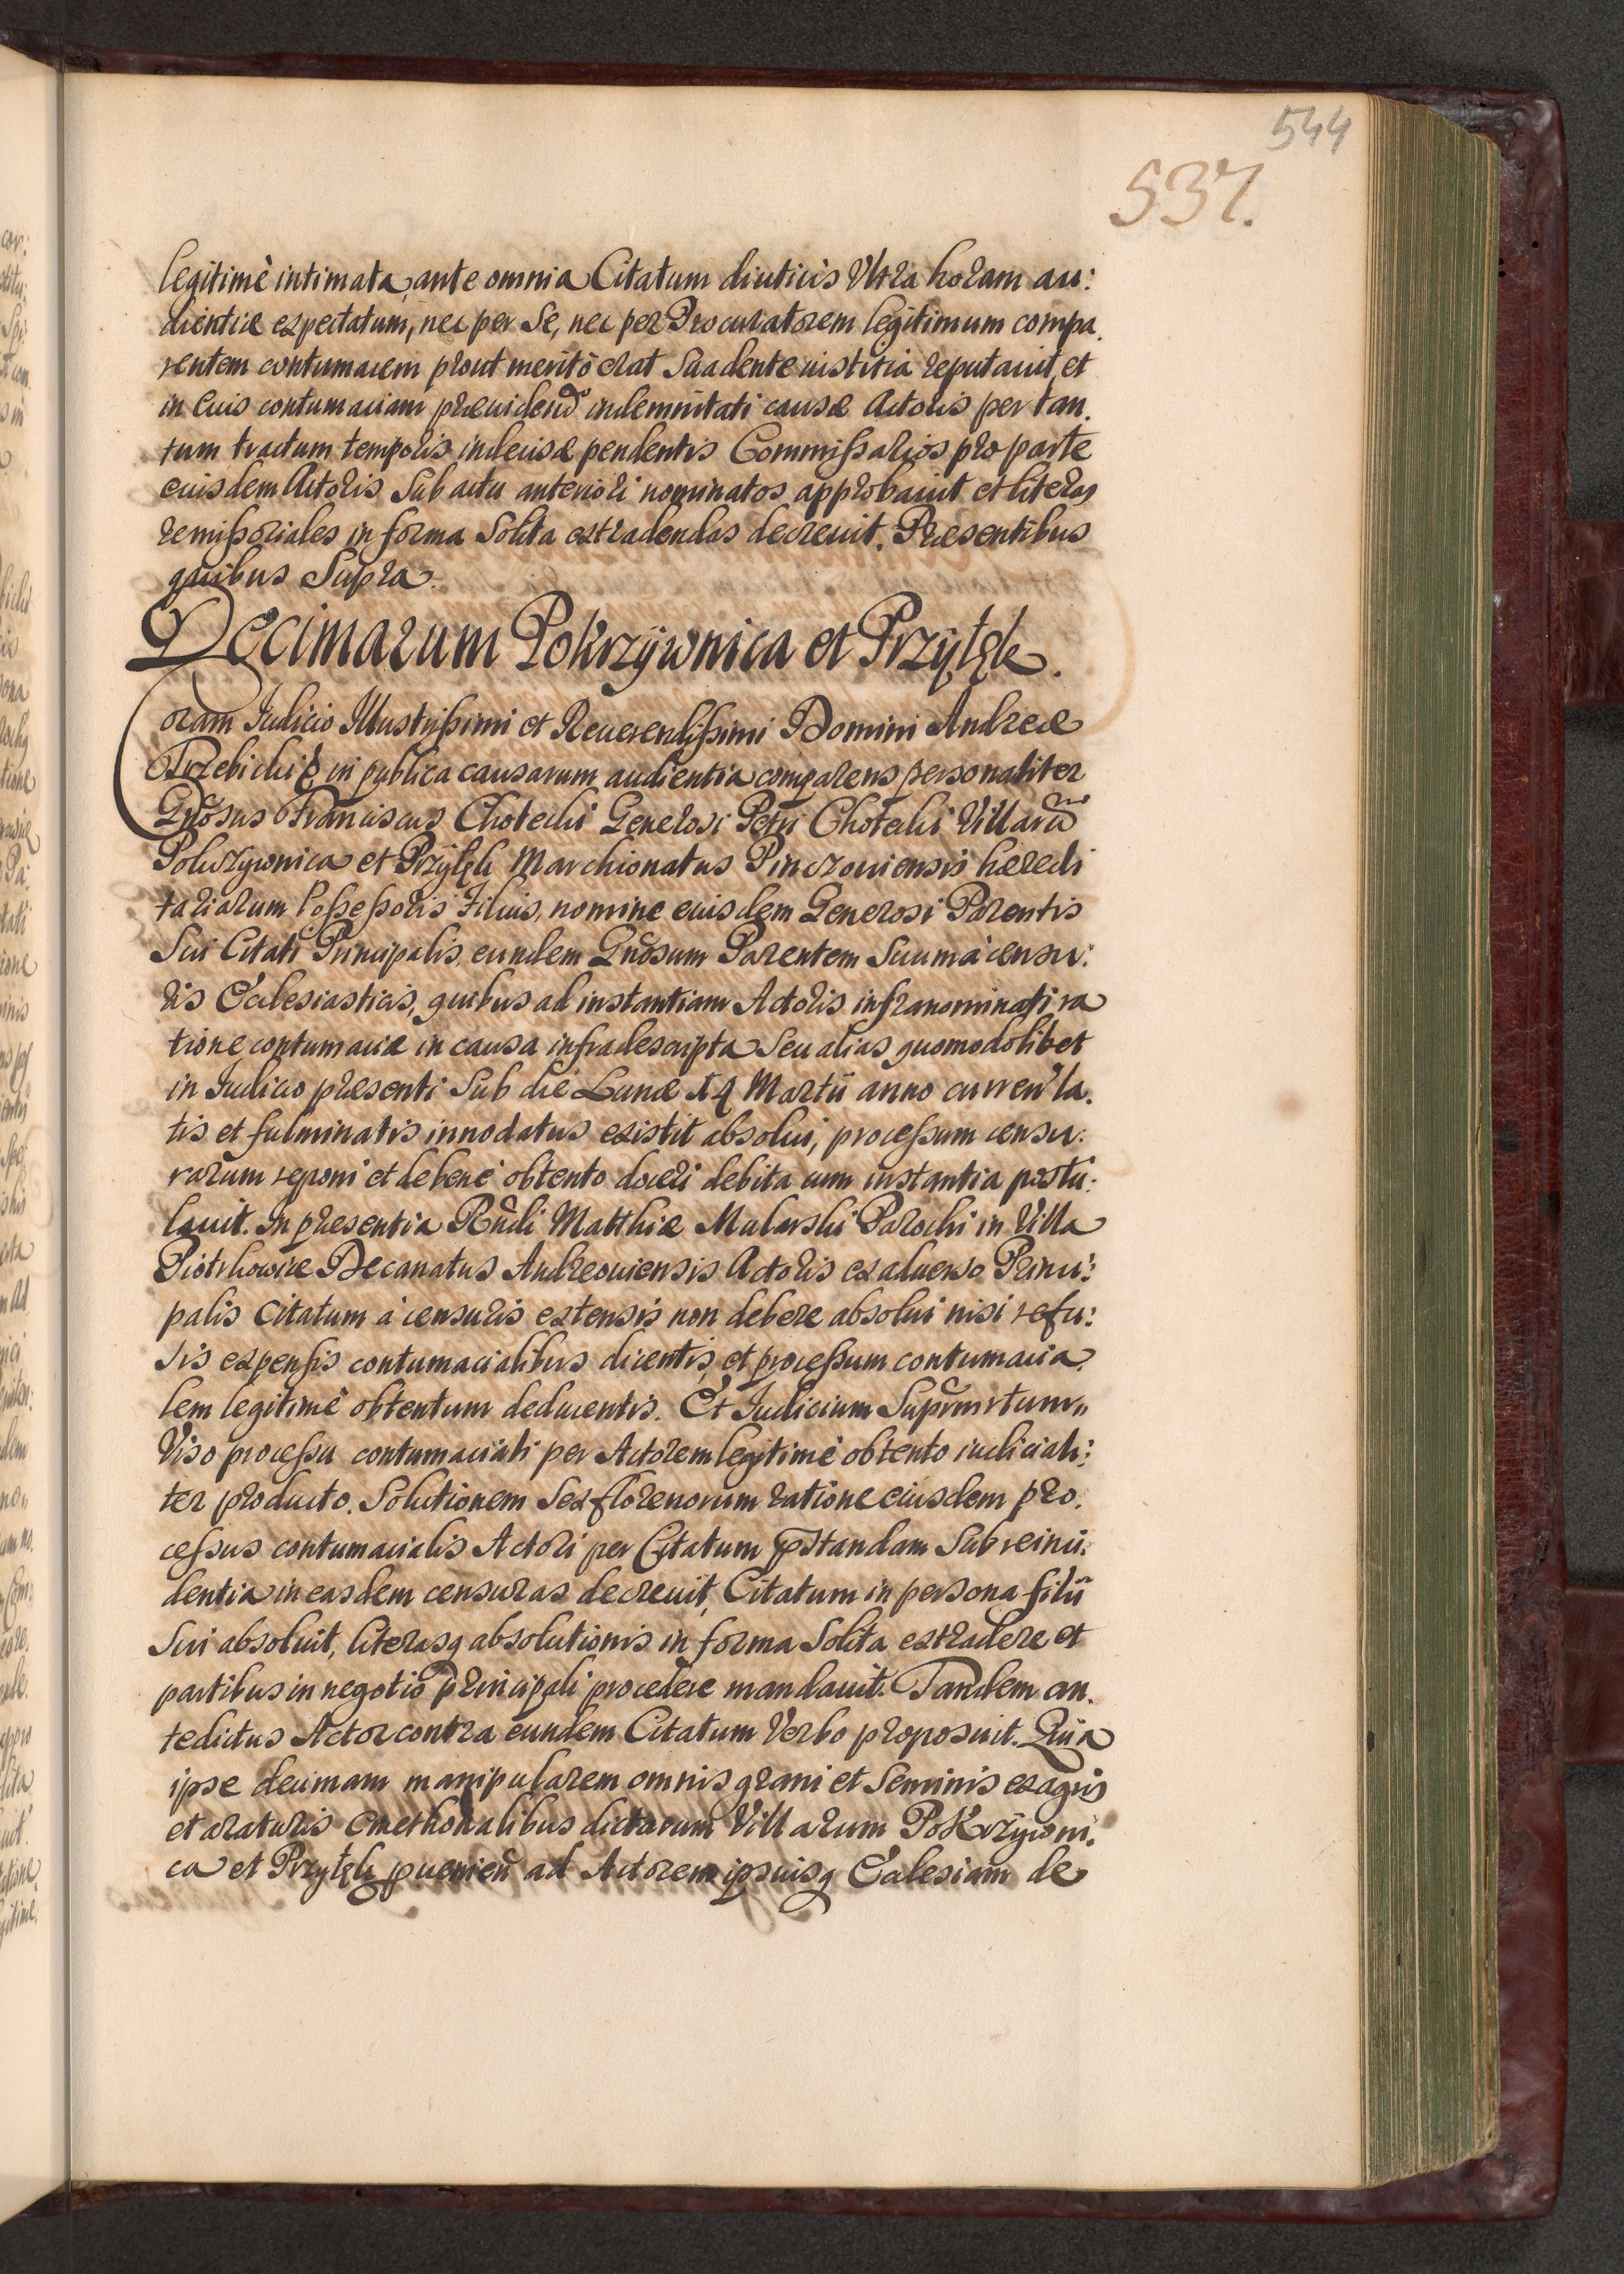 544
537.
legitimè intimata, ante omnia Citatum diutius Vltra horam au:
dientiæ expectatum, nec per Se, nec per Procuratorem legitimum compa.
rentem contumacem prout meritò erat Suadente iustitia reputauit, et
in Euis contumaciam præuidend° indemnitati causæ Actoris per tan.
tum tractum temporis indecisæ pendentis Commissarios pro parte
euisdem Actoris Sub actu anteriori nominatos approbauit et literas
remissoriales in forma Solita extradendas decreuit. Præsentibus
quibus Supra.
Decimarum Pokrzywnica et Przyłęk.
Coram Iudicio Illustrissimi et Reuerendissimi Domini Andreæ
Trzebicki in publica causarum audientia comparens personaliter
Gnosus Franciscus Chotecki Generosi Petri Chotecki Villarū
Pokrzywnica et Przyłęk Marchionatus Pinczouiensis hæredi
tariarum Possessoris Filius, nomine euisdem Generosi Parentis
Sui Citati Principalis, eundem Gnosum Parentem Suum à censu:
ris Ecclesiasticis, quibus ad instantiam Actoris infranominati ra
tione contumaciæ in causa infradescripta Seu alias quomodolibet
in Iudicio præsenti Sub die Lunæ 14 Martii anno curren' la.
tis et fulminatis innodatus existit absolui, processum censu:
rarum reponi et debene obtento doceri debita cum instantia postu:
lauit. In præsentia Rndi Matthiæ Mularski Parochi in Villa
Piotrkowice Decanatus Andreouiensis Actoris ex aduerso Princi:
palis Citatum à censuris extensis non debere absolui nisi refu:
sis expensis contumacialibus dicentis, et processum contumacia.
lem legitimè obtentum deducentis. Et Iudicium Suprmrtum,,
Viso processu contumaciali per Actorem legitimè obtento iudiciali:
ter producto. Solutionem Sex florenorum ratione eiusdem pro.
cessus contumacialis Actori per Citatum pstandam Sub reinci:
dentia in easdem censuras decreuit, Citatum in persona filii
Sui absoluit, literasq absolutionis in forma Solita extradere et
partibus in negotio Principali procedere mandauit. Tandem an.
tedictus Actor contra eundem Citatum Verbo proposuit. Quia
ipse decimam manipularem omnis grani et Seminis ex agris
et araturis Cmethonalibus dictarum Villarum Pokrzywni.
ca et Przyłęk puenien̄ ad Actorem ipsiusq Ecclesiam de